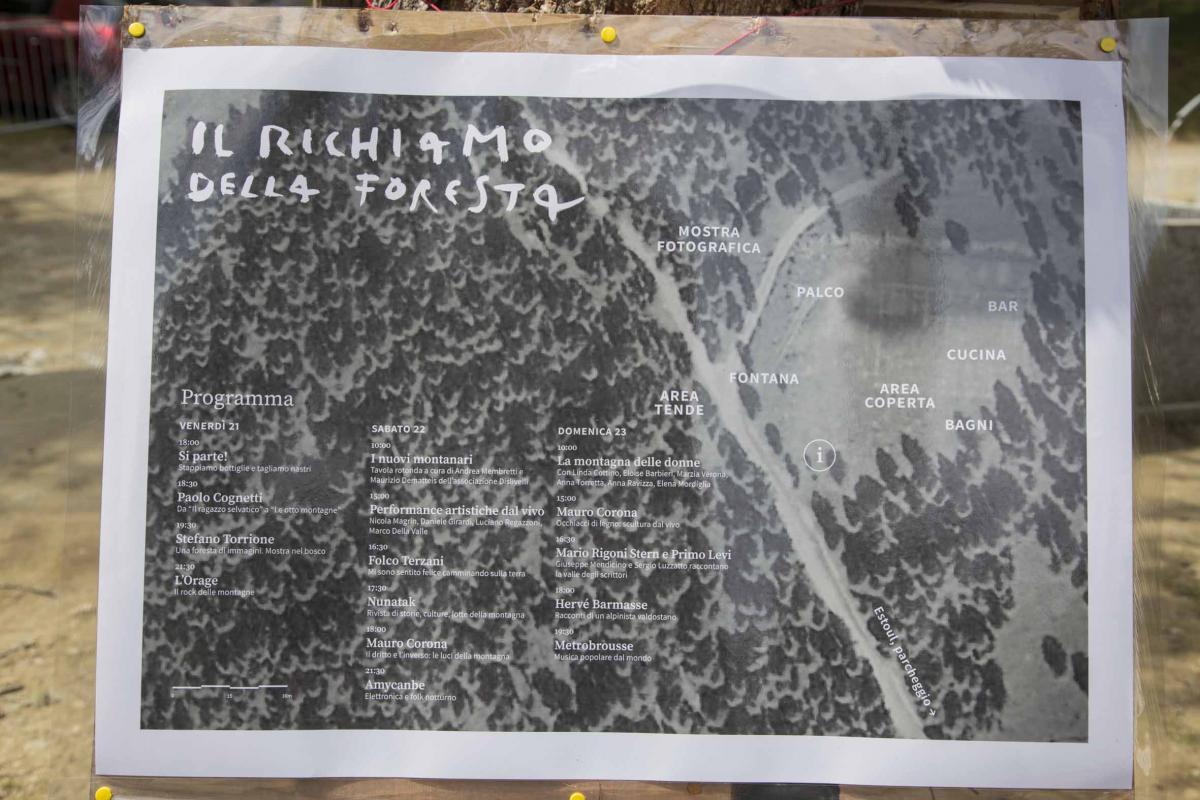 IL RICHIAMO
DELLA FORESTA
MOSTRA
FOTOGRAFICA
PALCO
BAR
CUCINA
FONTANA
AREA
COPERTA
AREA
TENDE
BAGNI
i
Estoul, parcheggio →
Programma
VENERDÌ 21
18:00
Si parte!
Stappiamo bottiglie e tagliamo nastri
18:30
Paolo Cognetti
Da "Il ragazzo selvatico" a "Le otto montagne"
19:30
Stefano Torrione
Una foresta di immagini. Mostra nel bosco
21:30
L'Orage
Il rock delle montagne
SABATO 22
10:00
I nuovi montanari
Tavola rotonda a cura di Andrea Membretti e
Maurizio Dematteis dell'associazione Dislivelli
15:00
Performance artistiche dal vivo
Nicola Magrin, Daniele Girardi, Luciano Regazzoni,
Marco Della Valle
16:30
Folco Terzani
Mi sono sentito felice camminando sulla terra
17:30
Nunatak
Rivista di storie, culture, lotte della montagna
18:00
Mauro Corona
Il dritto e l'inverso: le luci della montagna
21:30
Amycanbe
Elettronica e folk notturno
DOMENICA 23
10:00
La montagna delle donne
Con Linda Cottino, Eloise Barbieri, Marzia Verona,
Anna Torretta, Anna Ravizza, Elena Mordiglia
15:00
Mauro Corona
Occhiacci di legno: scultura dal vivo
16:30
Mario Rigoni Stern e Primo Levi
Giuseppe Mendicino e Sergio Luzzatto raccontano
la valle degli scrittori
18:00
Hervé Barmasse
Racconti di un alpinista valdostano
19:30
Metrobrousse
Musica popolare dal mondo
15